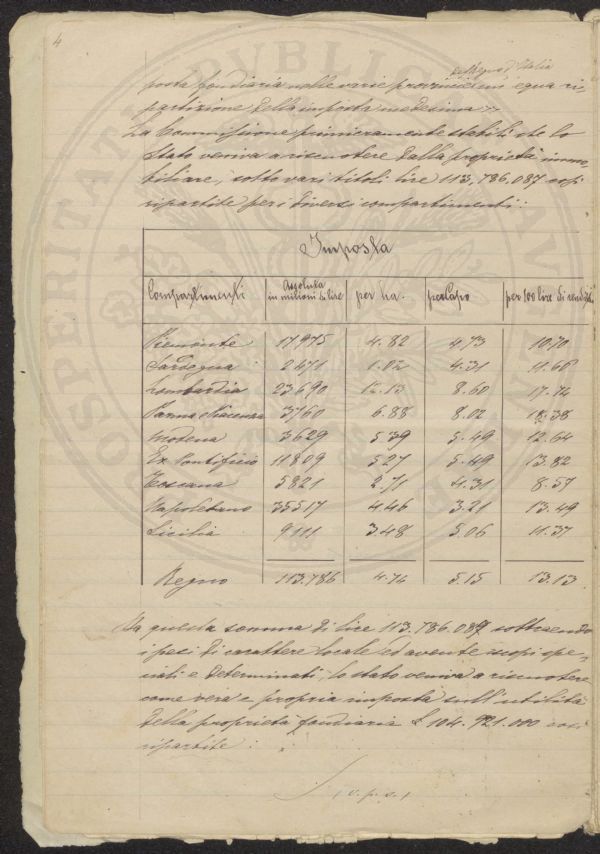 4
del Regno d'Italia
posta fondiaria nelle varie provincie equa ri-
partizione della imposta medesima».
La Commissione primieramente stabilì che lo
Stato veniva a riscuotere dalla proprietà immo-
biliare, sotto vari titoli lire 113,786.087 così
ripartite per i diversi compartimenti:
Imposta
Compartimenti Assoluta in milioni di lire per ha. per Capo per 100 lire di rendita
Piemonte 17975 4.82 4.73 10.70
Sardegna 2471 1.02 4.31 11.66
Lombardia 23690 12.13 8.60 17.74
Parma Piacenza 3760 6.88 8.02 18.38
Modena 3629 5.39 5.49 12.64
Ex Pontificio 11809 5.27 5.49 13.82
Toscana 5821 2.71 4.31 8.57
Napoletano 35517 4.46 3.21 13.49
Sicilia 9111 3.48 5.06 11.37
Regno 113.786 4.74 5.15 13.13
Da questa somma di lire 113.786.087 sottraendo
i pesi di carattere locale ed avente scopi spe-
ciali e determinati, lo stato veniva a riscuotere
come vera e propria imposta sull'utilità
della proprietà fondiaria £ 104.921.000 così
ripartite:
(v. p. s.)